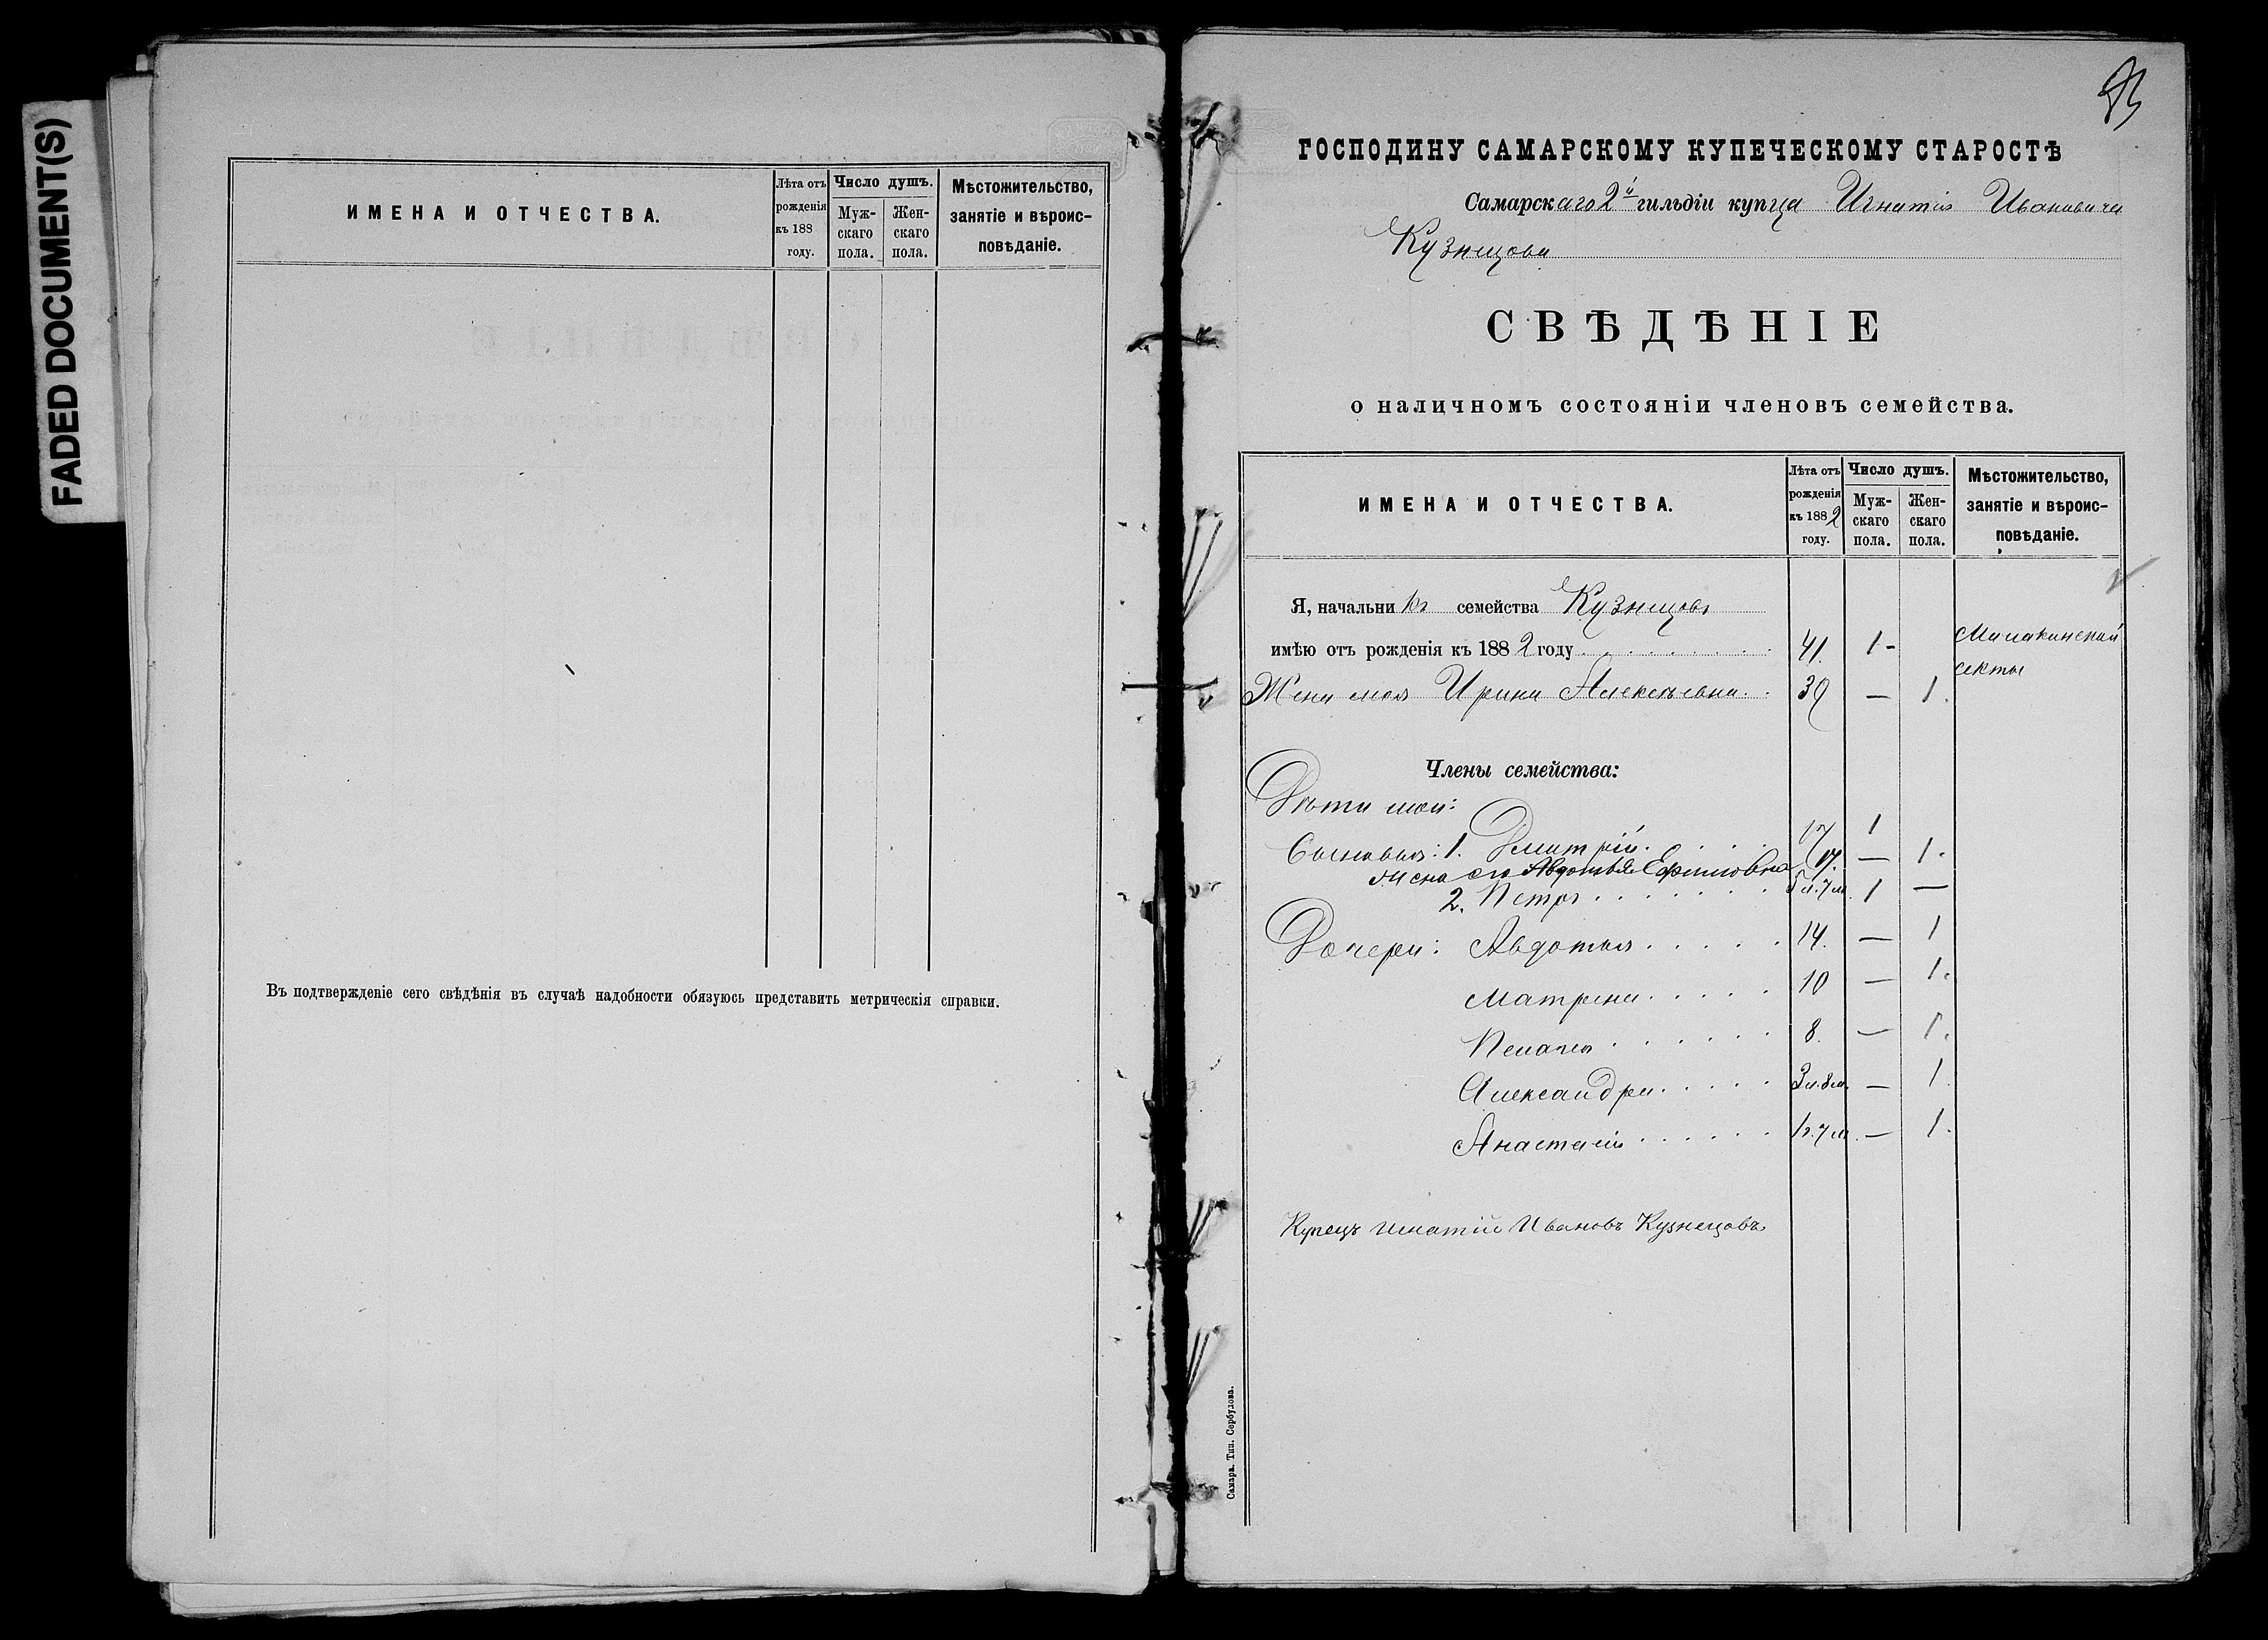 FADED DOCUMENT(S)
ИМЕНА И ОТЧЕСТВА.
Лѣта отъ рожденія къ 188 году.
Число душъ.
Мужскаго пола.
Женскаго пола.
Мѣстожительство, занятіе и вѣроисповѣданіе.
Въ подтвержденіе сего свѣдѣнія въ случаѣ надобности обязуюсь представить метрическія справки.
ГОСПОДИНУ САМАРСКОМУ КУПЕЧЕСКОМУ СТАРОСТѢ
Самарскаго 2й гильдіи купца Игнатія Ивановича
Кузнецова
СВѢДѢНІЕ
о наличномъ состояніи членовъ семейства.
ИМЕНА И ОТЧЕСТВА.
Лѣта отъ рожденія къ 1882 году.
Число душъ.
Мужскаго пола.
Женскаго пола.
Мѣстожительство, занятіе и вѣроисповѣданіе.
Я, начальникъ семейства Кузнецовъ
имѣю отъ рожденія къ 1882 году 41. 1 - Малаканской
секты
Жена моя Ирина Алексѣевна 39 — 1.
Члены семейства:
Дѣти мои:
Сыновья: 1. Дмитрій 17 1
жена его Авдотья Ефимовна 17. — 1.
2. Петръ 5 л. 7 м. 1 —
Дочери: Авдотья 14. — 1
Матрена 10 — 1.
Пелагея 8. — 1.
Александра 3 л. 8 м. — 1.
Анастасія 1 г. 7 м. — 1.
Купецъ Игнатій Ивановъ Кузнецовъ
Самара. Тип. Сербулова.